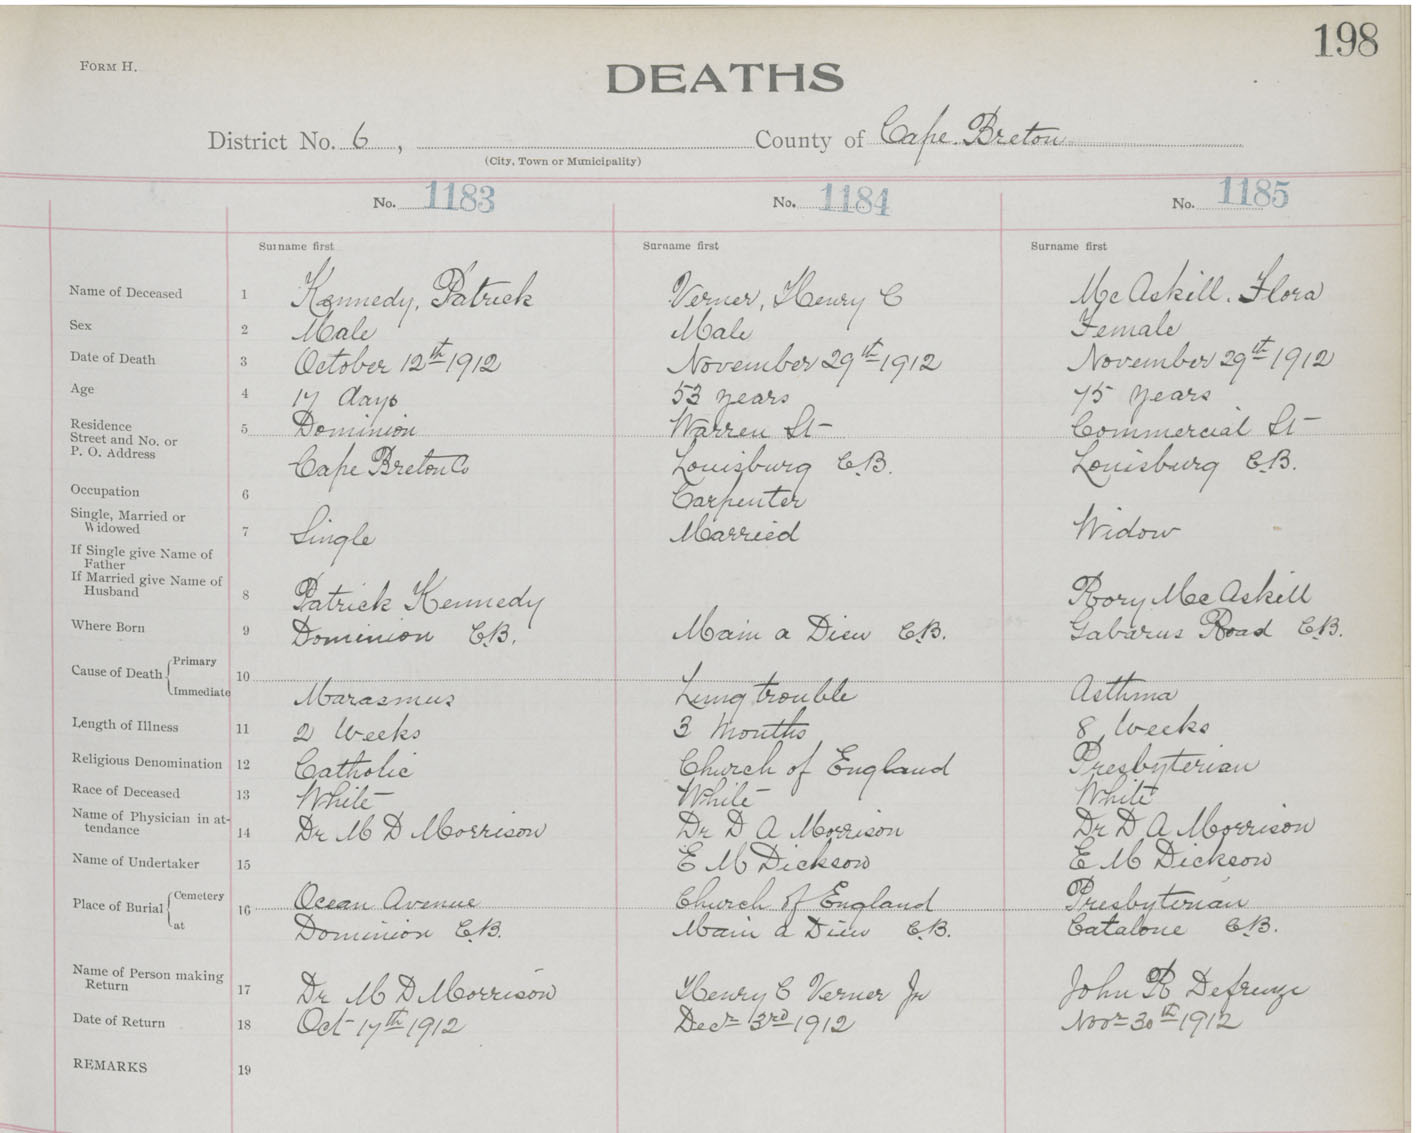 198
FORM H.
DEATHS
District No. 6, County of Cape Breton
(City, Town or Municipality)
No. 1183 No. 1184 No. 1185
Surname first Surname first Surname first
Name of Deceased 1 Kennedy, Patrick Verner, Henry C McAskill. Flora
Sex 2 Male Male Female
Date of Death 3 October 12th 1912 November 29th 1912 November 29th 1912
Age 4 17 days 53 years 75 years
Residence 5 Dominion Warren St Commercial St
Street and No. or
P. O. Address Cape Breton Co Louisburg C.B. Louisburg C.B.
Occupation 6 Carpenter
Single, Married or
Widowed 7 Single Married Widow
If Single give Name of
Father
If Married give Name of
Husband 8 Patrick Kennedy Rory McAskill
Where Born 9 Dominion C.B. Main a Dieu C.B. Gabarus Road C.B.
Cause of Death Primary 10
Immediate Marasmus Lung trouble Asthma
Length of Illness 11 2 Weeks 3 Months 8 Weeks
Religious Denomination 12 Catholic Church of England Presbyterian
Race of Deceased 13 White White White
Name of Physician in at-
tendance 14 Dr M D Morrison Dr D A Morrison Dr D A Morrison
Name of Undertaker 15 E M Dickson E M Dickson
Place of Burial Cemetery 16 Ocean Avenue Church of England Presbyterian
at Dominion C.B. Main a Dieu C.B. Catalone C.B.
Name of Person making
Return 17 Dr M D Morrison Henry C Verner Jr John R
Date of Return 18 Oct 17th 1912 Decr 3rd 1912 Novr 30th 1912
REMARKS 19